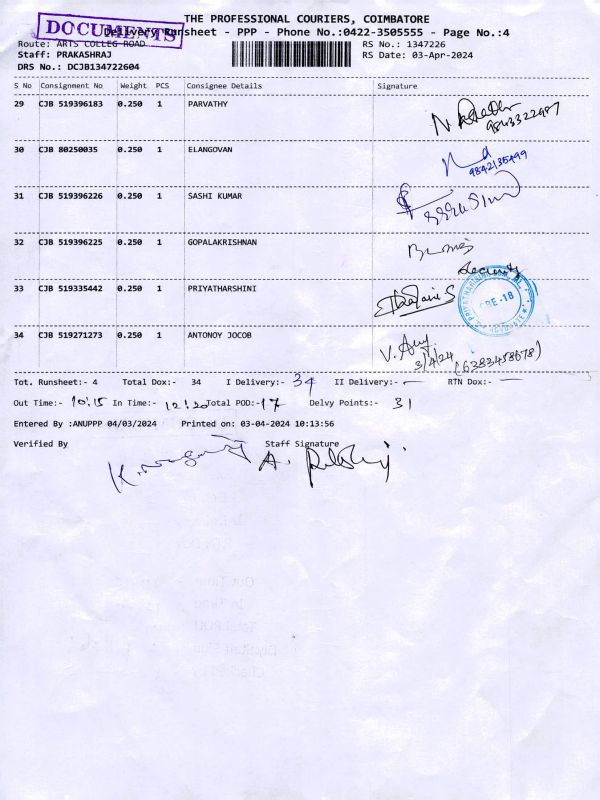 THE PROFESSIONAL COURIERS, COIMBATORE
DOCUMENTS
Delivery Runsheet - PPP - Phone No.:0422-3505555 - Page No.:4
Route: ARTS COLLEG ROAD
RS No.: 1347226
Staff: PRAKASHRAJ
RS Date: 03-Apr-2024
DRS No.: DCJB134722604
S No Consignment No Weight PCS Consignee Details Signature
29 CJB 519396183 0.250 1 PARVATHY
9843322487
30 CJB 80250035 0.250 1 ELANGOVAN
9842135499
31 CJB 519396226 0.250 1 SASHI KUMAR
32 CJB 519396225 0.250 1 GOPALAKRISHNAN
Security
33 CJB 519335442 0.250 1 PRIYATHARSHINI
CBE-18
34 CJB 519271273 0.250 1 ANTONOY JOCOB
3/4/24 (6383458678)
Tot. Runsheet:- 4 Total Dox:- 34 I Delivery:- 34 II Delivery:- — RTN Dox:- —
Out Time:- 10:15 In Time:- 12:20 Total POD:- 17 Delvy Points:- 31
Entered By :ANUPPP 04/03/2024 Printed on: 03-04-2024 10:13:56
Verified By Staff Signature